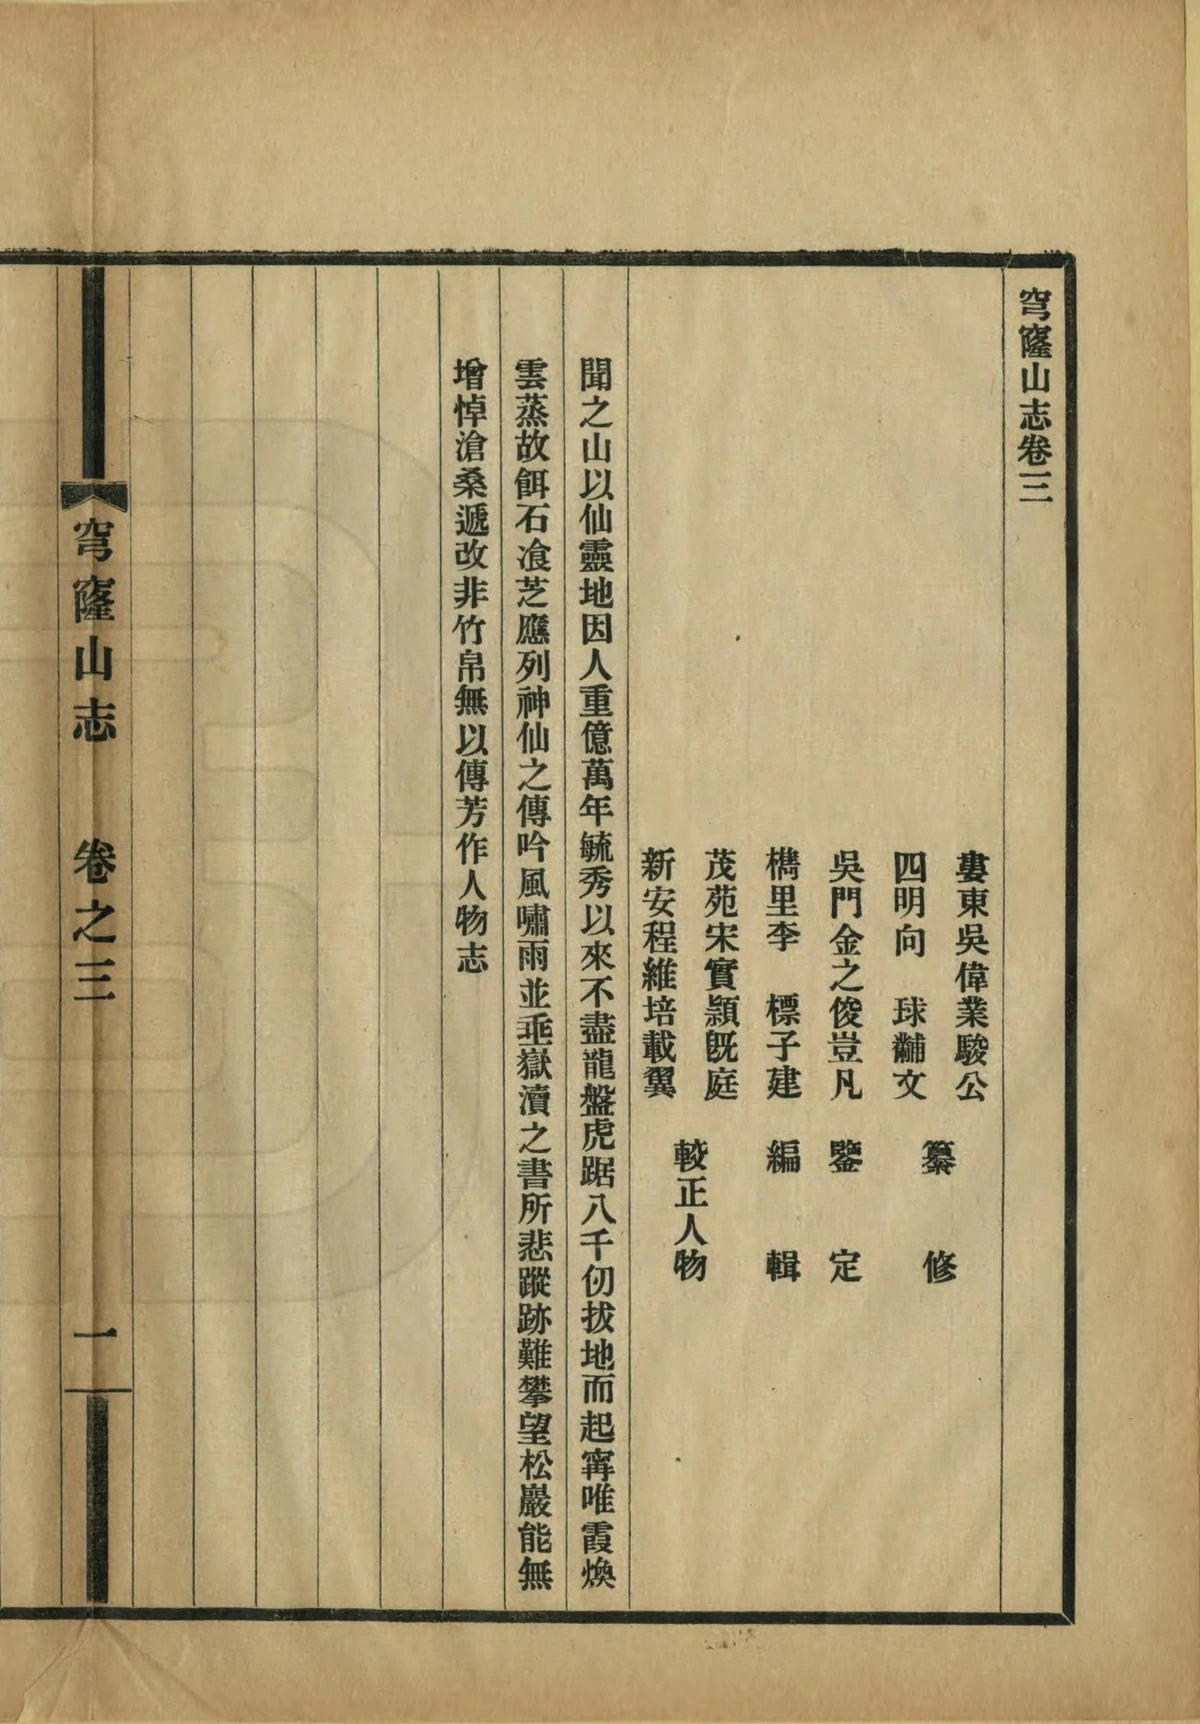 穹窿山志卷三
婁東吳偉業駿公
四明向　球黼文
纂　修
吳門金之俊豈凡　鑒　定
檇里李　標子建　編　輯
茂苑宋實穎旣庭
新安程維培載翼
較正人物
聞之山以仙靈地因人重億萬年毓秀以來不盡龍盤虎踞八千仞拔地而起寗唯霞煥
雲蒸故餌石飡芝應列神仙之傳吟風嘯雨並垂嶽瀆之書所悲蹤跡難攀望松巖能無
增悼滄桑遞改非竹帛無以傳芳作人物志
穹窿山志　卷之三　一